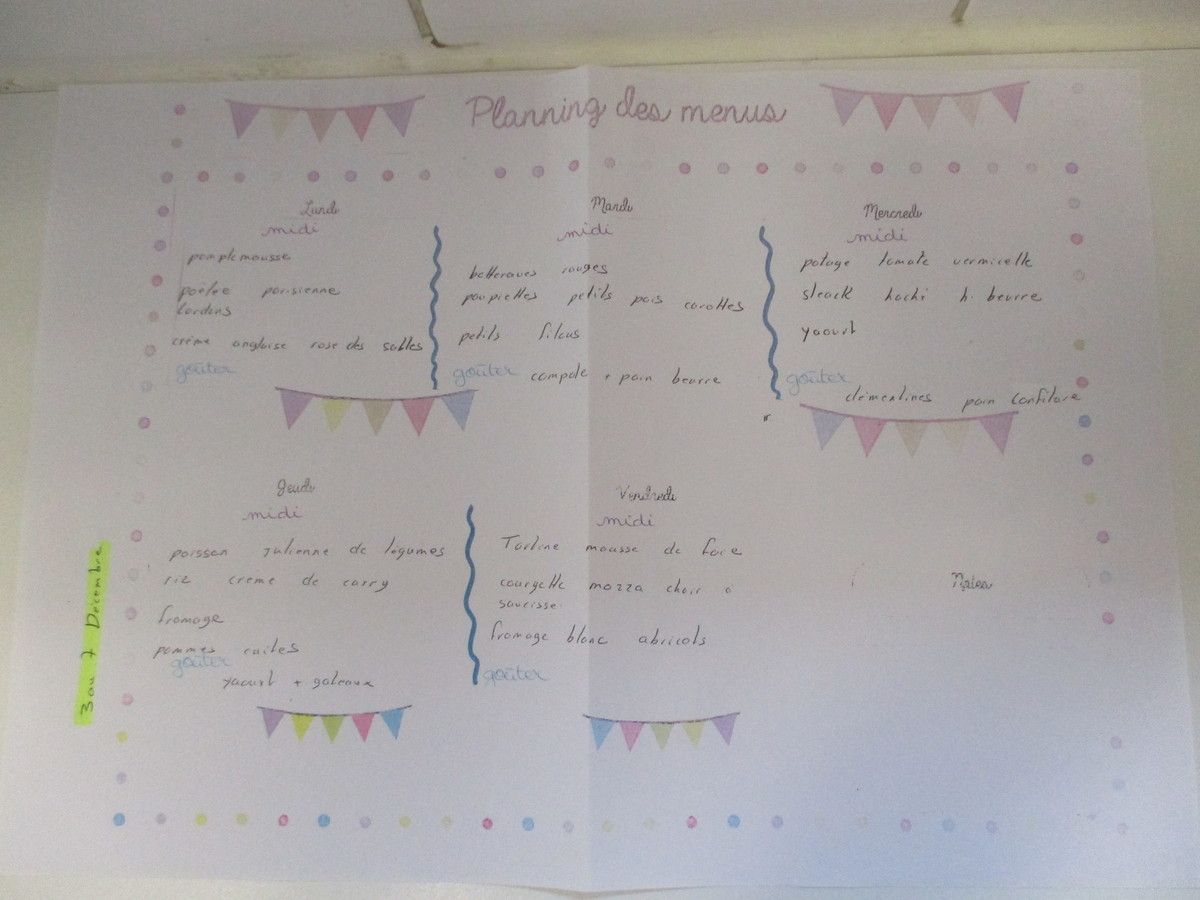 Planning des menus
Lundi
midi
pamplemousse
poêlée parisienne
lardons
crème anglaise rose des sables
goûter
Mardi
midi
betteraves rouges
paupiettes petits pois carottes
petits filous
goûter compote + pain beurre
Mercredi
midi
potage tomate vermicelle
steack haché h. beurre
yaourt
goûter
clémentines pain confiture
Jeudi
midi
poisson julienne de légumes
riz crème de curry
fromage
pommes cuites
goûter
yaourt + gateaux
Vendredi
midi
Tartine mousse de foie
courgette mozza chair à
saucisse
fromage blanc abricots
goûter
3 au 7 Décembre